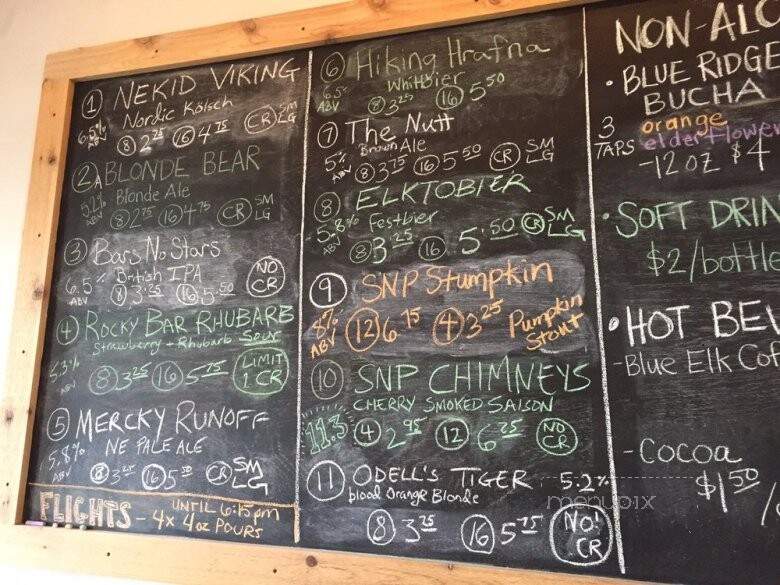 1 NEKID VIKING
Nordic Kölsch
6.5% ABV 8 2.75 16 4.75 CR SM LG
2A BLONDE BEAR
Blonde Ale
5.2% ABV 8 2.75 16 4.75 CR SM LG
3 Bars No Stars
British IPA
6.5% ABV 8 3.25 16 5.50 NO CR
4 ROCKY BAR RHUBARB
Strawberry + Rhubarb Sour
5.3% ABV 8 3.25 16 5.75 LIMIT 1 CR
5 MERCKY RUNOFF
NE PALE ALE
5.8% ABV 8 3.25 16 5.50 CR SM LG
FLIGHTS - UNTIL 6:15 pm
4x 4oz POURS
6 Hiking Hrafna
Whitbier
6.5% ABV 8 3.25 16 5.50
7 The Nutt
Brown Ale
5% ABV 8 3.25 16 5.50 CR SM LG
8 ELKTOBIER
Festbier
5.8% ABV 8 3.25 16 5.50 CR SM LG
9 SNP Stumpkin
8% ABV 12 6.75 4 3.25 Pumpkin Stout
10 SNP CHIMNEYS
CHERRY SMOKED SAISON
11.3 4 2.95 12 6.25 NO CR
11 ODELL'S TIGER 5.2%
blood Orange Blonde
8 3.25 16 5.75 NO! CR
NON-ALC
• BLUE RIDGE
BUCHA
3 TAPS
orange
elderflower
-12 oz $4
• SOFT DRIN
$2/bottle
• HOT BEV
-Blue Elk Cof
-Cocoa
$1.50
menupix